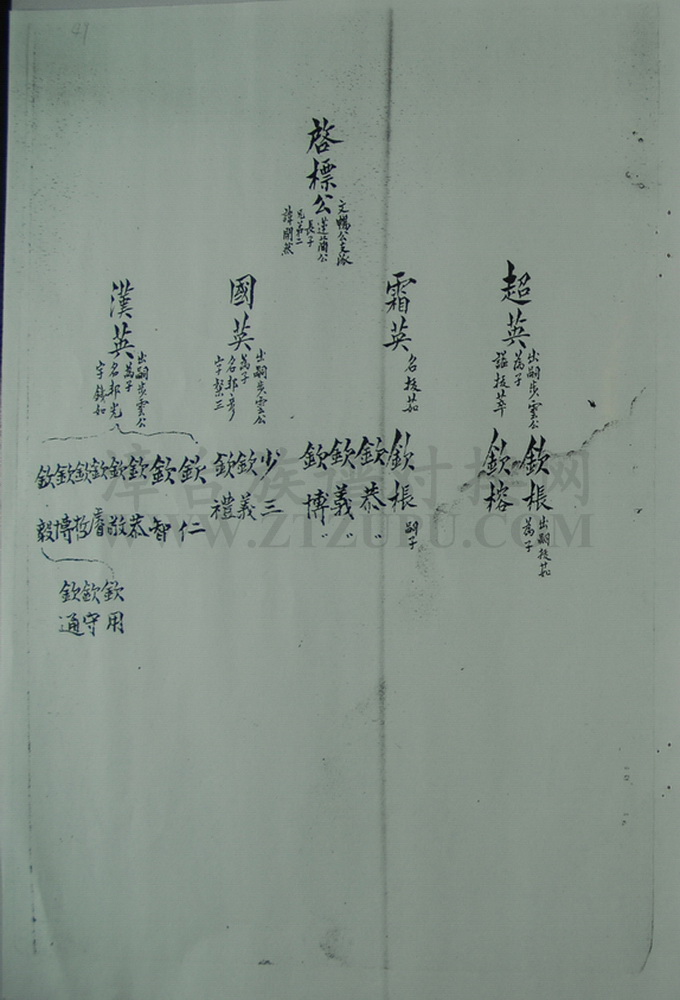 41
啓標公
文暢公支派
蓮蘭公
長子
兄弟二
諱開然
超英
出嗣步雲公
為子
諡拔萃
霜英
名拔茹
國英
出嗣步雲公
為子
名邦彥
字黎三
漢英
出嗣步雲公
為子
名邦光
字鏡如
欽棖
出嗣拔茹
為子
欽榕
欽棖
嗣子
欽恭〃
欽義〃
欽博〃
少三
欽義
欽禮
欽仁
欽智
欽恭
欽敬
欽睿
欽哲
欽博
欽毅
欽用
欽守
欽通
WWW.ZTZUPU.COM